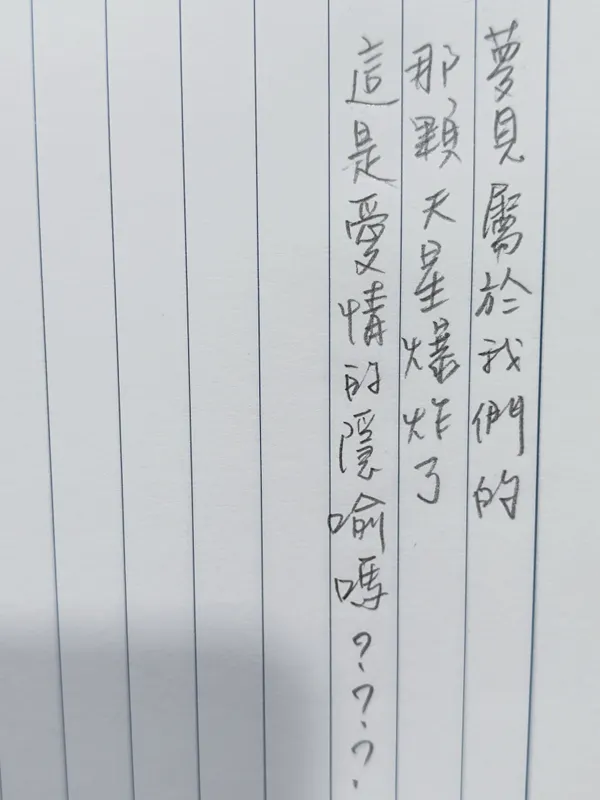 夢見屬於我們的
那顆天星爆炸了
這是愛情的隱喻嗎???